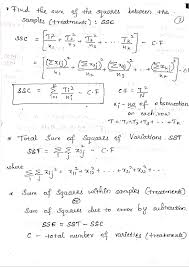 * Find the sum of the squares between the
samples (treatments) : SSC
①
SSC = [ T1²/n1 + T2²/n2 + T3²/n3 + ... + Tc²/nc ] - C.F
= [ (Σx1j)²/n1 + (Σx2j)²/n2 + (Σx3j)²/n3 + ... ] - C.F
SSC = Σ Ti²/ni - C.F
CF = T²/N
ni - no of observation
on each row
T = T1 + T2 + T3 + ... + Tc
* Total Sum of Squares of Variations : SST
SST = Σ Σ xij² - C.F
where
Σ Σ xij² =
* Sum of Squares within samples (treatments)
Sum of Squares due to error by subtraction
SSE = SST - SSC
C - total number of varieties (treatments)